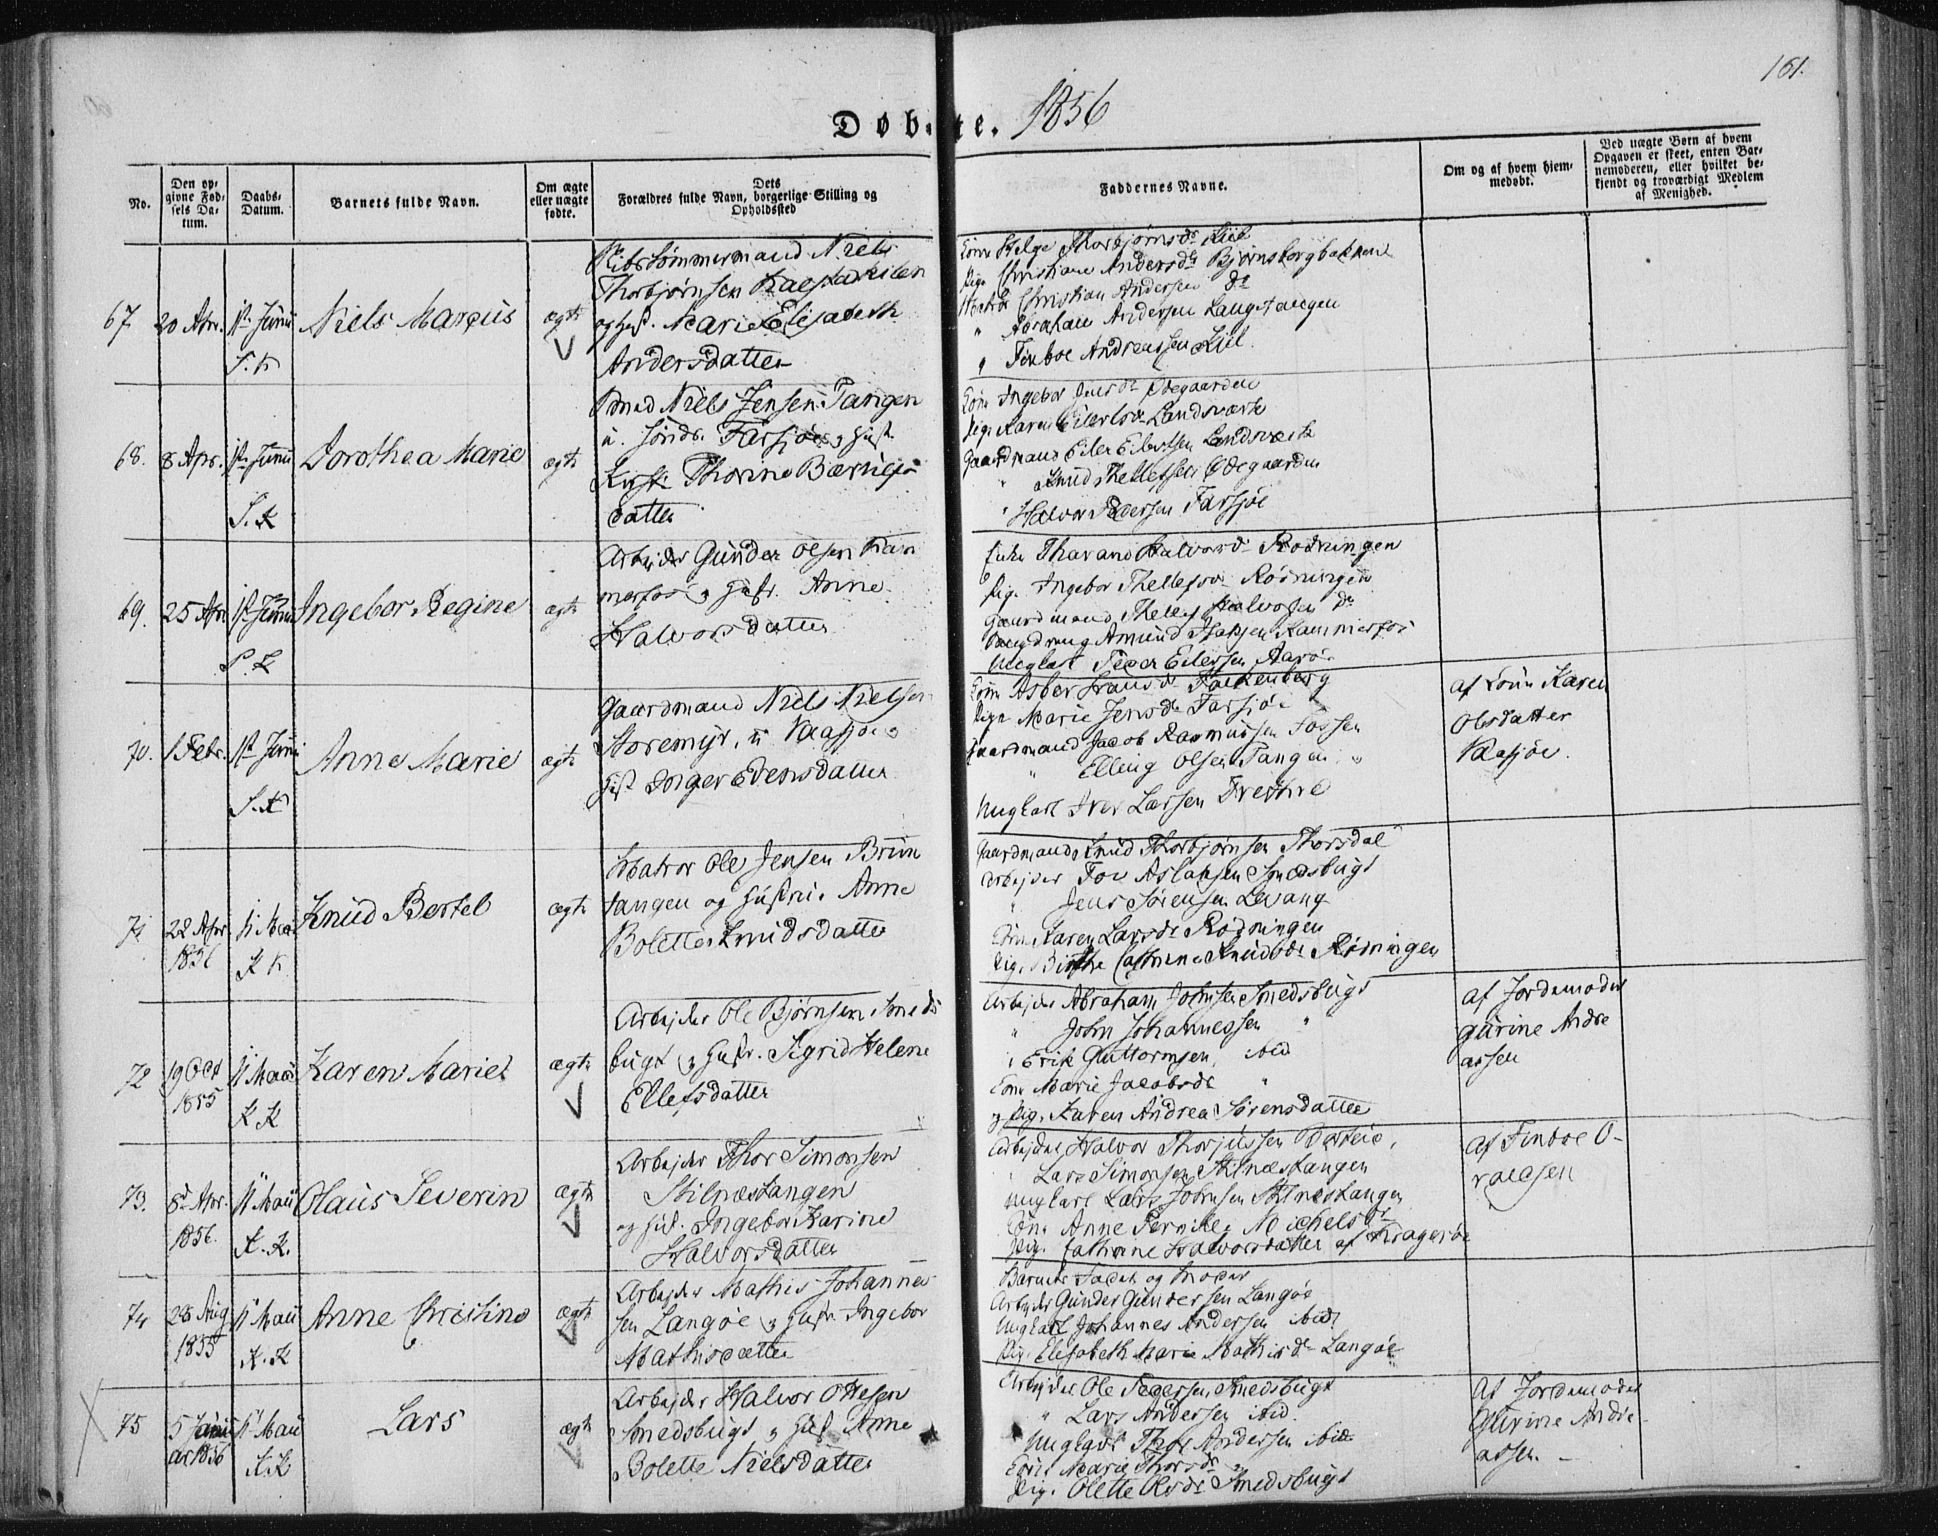 161.
Døbte. 1856
No.
Den opgivne Fødsels Datum.
Daabs-Datum.
Barnets fulde Navn.
Om ægte eller uægte fødte.
Dets Forældres fulde Navn, borgerlige Stilling og Opholdssted
Faddernes Navne.
Om og af hvem hjemmedøbt.
Ved uægte Børn af hvem Opgaven er skeet, enten Barnemoderen, eller hvilket bekjendt og troværdigt Medlem af Menighed.
67 20 Apr. 1ste Junii S. K Niels Marcus ægte
Skibstømmermand Niels
Thorbjørnsen
og Hust. Marie Elisabeth
Andersdatter
Kone Helge Thorbjørnsdr Kiil
Pige Christiane Andersdr Bjørnsborgbakkene
Christian Andersen do
" Abraham Andersen Langetangen
" Finboe Andreassen Kiil.
68. 8 Apr. 1ste Junii S. K Dorothea Marie ægte
Niels Jensen Tangen
u. søndr. Farsjøe og Hust.
Thorine
datter
Kone Ingebor Jensdr Ødegaarden
Pige Karen Eilertsdr Landsværk
Gaardmand Eiler Eilertsen Landsværk
" Knud Thellefsen Ødegaarden
" Halvor Pedersen Farsjøe
69. 25 Apr 1ste Junii S. K Ingebor Regine ægte
Arbejder Gunder Olsen Kam
merfos og Hustr. Anne
Halvorsdatter
Enke Halvorsdr Rødningen
Pige Ingebor Thellefsdr Rødningen
Gaardmand Thellef Halvorsen do
Amund Isaksen Kammerfos
Ungkarl Peder Eilersen Aarø
70. 1 Febr. 1ste Junii S. K Anne Marie ægte
Gaardmand Niels Nielsen
Storemyr, u Vaasjøe og
Hust Evensdatter
Kone Asber Falkenberg
Pige Marie Jensdr Farsjøe
Gaardmand Jacob Rasmussen Fossen
" Elling Olsen Tangen "
Ungkarl Iver Larsen
af Kone Karen
Olsdatter
Vaasjøe.
71 22 Apr 1856 11 Mai K K Knud Bertel ægte
Matros Ole Jensen Brun
tangen og Hustrue Anne
Bolette Knudsdatter
Gaardmand Knud Thorbjørnsen Thorsdal
Arbejder Tov Aslaksen Smedsbugt
" Jens Sørensen Levang
Kone Karen Larsdr Rødningen
Pige Birthe Cathrine Knudsdr Rødningen
72 19 Oct 1855 11 Mai K K Karen Marie ægte
Arbejder Ole Bjørnsen Smeds
bugt og Hustr. Sigrid Helene
Ellefsdatter
Arbejder Abraham Johnsen Smedsbugt
" John Johannessen "
" Erik Guttormsen ibid
Kone Marie Jacobsdr "
og Pige Karen Andrea Sørensdatter
af Jordemoder
Gurine Andre
assen
73. 8de Apr. 1856. 11 Maii K. K. Olaus Severin ægte
Arbejder Thor Simonsen
Stilnestangen
og Hust. Ingebor Karine
Halvorsdatter
Arbejder Halvor Thorjussen
" Lars Simonsen Stilnæstangen
Ungkarl Lars Johnsen Stilnæstangen
Kone Anne Pernille Michelsdr
Pige Cathrine Halvorsdatter af Kragerøe
af Finboe O-
raugsen
74 28 Aug 1855 11 Maii K. K Anne Christine ægte
Arbejder Mathis Johanne
sen Langøe og Hustr. Ingebor
Mathisdatter
Barnets Fader og Moder
Arbejder Gunder Gundersen Langøe
Ungkarl Johannes Andersen ibid
Pige Elisabeth Marie Mathisdr Langøe
75 5 Januar 1856 11 Maii K. K Lars ægte
Arbejder Halvor Ottesen
Smedsbugt og Hust Anne
Bolette Nielsdatter
Arbejder Ole Pedersen Smedsbugt
" Lars Andersen ibid.
Ungkarl Thor Andersen ibid
Kone Marie Thorsdr "
Pige Olette Smedsbugt
Af Jordemoder
Gurine Andre-
assen. -